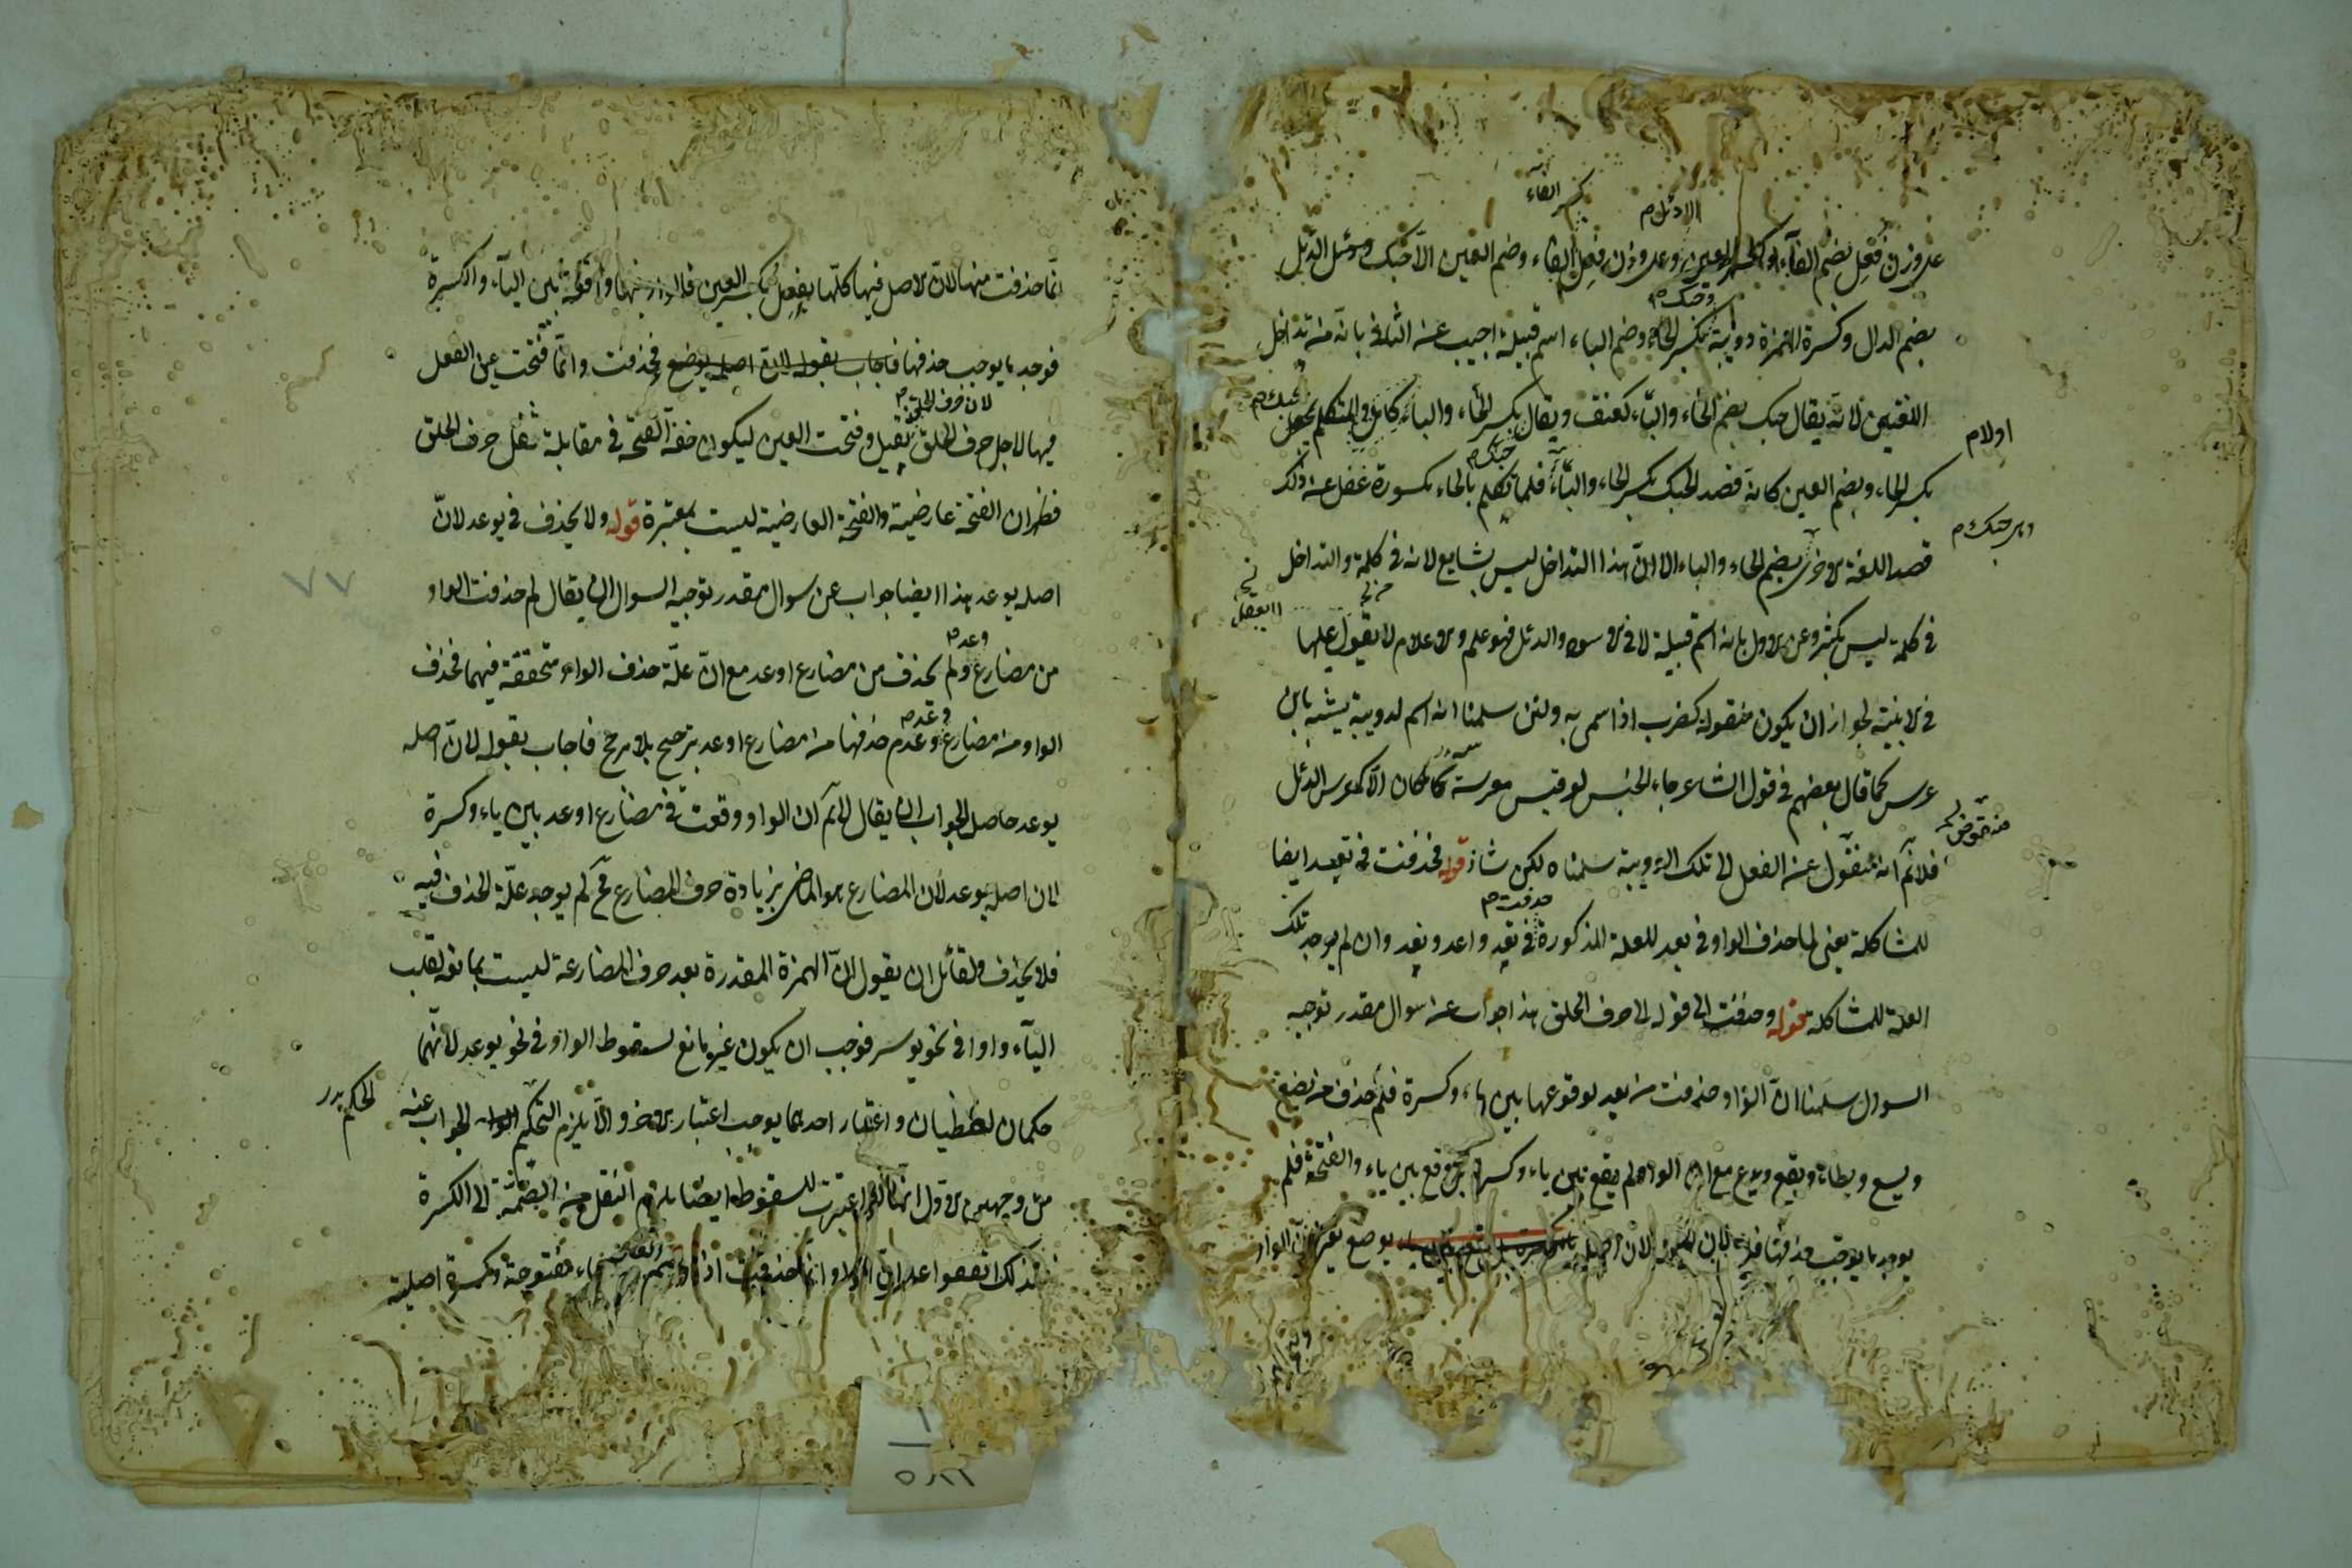 على وزن فُعِل بضم الفآء وكسر العين وعلى وزن فِعُل الفاء وضم العين الا حبك ودئل الدئل
بضم الدال وكسرة الهمزة دويبة بكسر الحاء وضم الباء اسم قبيلة اجيب عن الثلاثي بانه من تداخل
اللغتين لانه يقال حبك بضم الحاء والبآء كعنق ويقال بكسر الحاء والباء كابل فالمتكلم
بكسر الحاء وبضم العين كانه قصد الحبك بكسر الحاء والبآء فلما تكلم بالحاء مكسورة غفل عن ذلك
قصد اللغة الاخرى بضم الحاء والباء الا ان هذا التداخل ليس بشايع لانه في كلمة والتداخل
في كلمة ليس بكثير وعن الاول بانه اسم قبيلة لابي الاسود والدئل فهو علم والاعلام لا يعول عليها
في الابنية لجواز ان يكون منقولا كضرب اذا سمى به ولئن سلمنا انه اسم لدويبة يشبه بابن
عرس كما قال بعضهم في قول الشاعر جاء الجيش لو قيس معرسه ما كان الا كمعرس الدئل
فلا نم انه منقول عن الفعل الى تلك الدويبة سلمناه لكن شاذ قوله فحذفت في تعد ايضا
للمشاكلة يعني لما حذف الواو في يعد للعلة المذكورة في تعد واعد ونعد وان لم يوجد تلك
العلة للمشاكلة قوله وحذفت الى قوله الى حرف الحلق هذا جواب عن سوال مقدر توجيه
السوال سلمنا ان الواو حذفت من يعد لوقوعها بين ياء وكسرة فلم حذف من يضع
ويسع ويطاء ويقع ويدع مع ان الواو لم يقع بين ياء وكسرة بل وقع بين ياء والفتحة فلم
يوجد ما يوجب حذفها لان اصل يوضع
انما حذفت منها لان الاصل فيها كلها يفعِل بكسر العين فالواو فيها واقعة بين اليآء والكسرة
فوجد ما يوجب حذفها فاجاب بقوله لان اصله يوضع فحذفت وانما فتحت عين الفعل
لان حرف الحلق
فيها لاجل حرف الحلق ثقيل وفتحت العين ليكون خفة الفتحة في مقابلة ثقل حرف الحلق
فظهر ان الفتحة عارضية والفتحة العارضية ليست بمعتبرة قوله ولا يحذف في يوعد لان
اصله يوعد هذا ايضا جواب عن سوال مقدر توجيه السوال ان يقال لم حذفت الواو
من مضارع وعد ولم يحذف من مضارع اوعد مع ان علة حذف الواو متحققة فيهما فحذف
الواو من مضارع وعد وعدم حذفها من مضارع اوعد ترجيح بلا مرجح فاجاب بقوله لان اصله
يوعد حاصل الجواب ان يقال لا نم ان الواو وقعت في مضارع اوعد بين ياء وكسرة
لان اصله يوعد لان المضارع هو الماضي بزيادة حرف المضارع فح لم يوجد علة الحذف فيه
فلا يحذف ولقائل ان يقول ان الهمزة المقدرة بعد حرف المضارعة ليست بمانعة لقلب
اليآء واوا في نحو يوسر فوجب ان يكون غير مانع لسقوط الواو في نحو يوعد لانهما
حكمان لفظيان واعتبار احدهما يوجب اعتبار الاخر والا يلزم التحكم الجواب عنه
من وجهين الاول انها لو اعتبرت للسقوط ايضا يلزم النقل من الضمة الى الكسرة
فلذلك اتفقوا على ان الواو انما حذفت اذا ياء مفتوحة وكسرة اصلية
٧٧